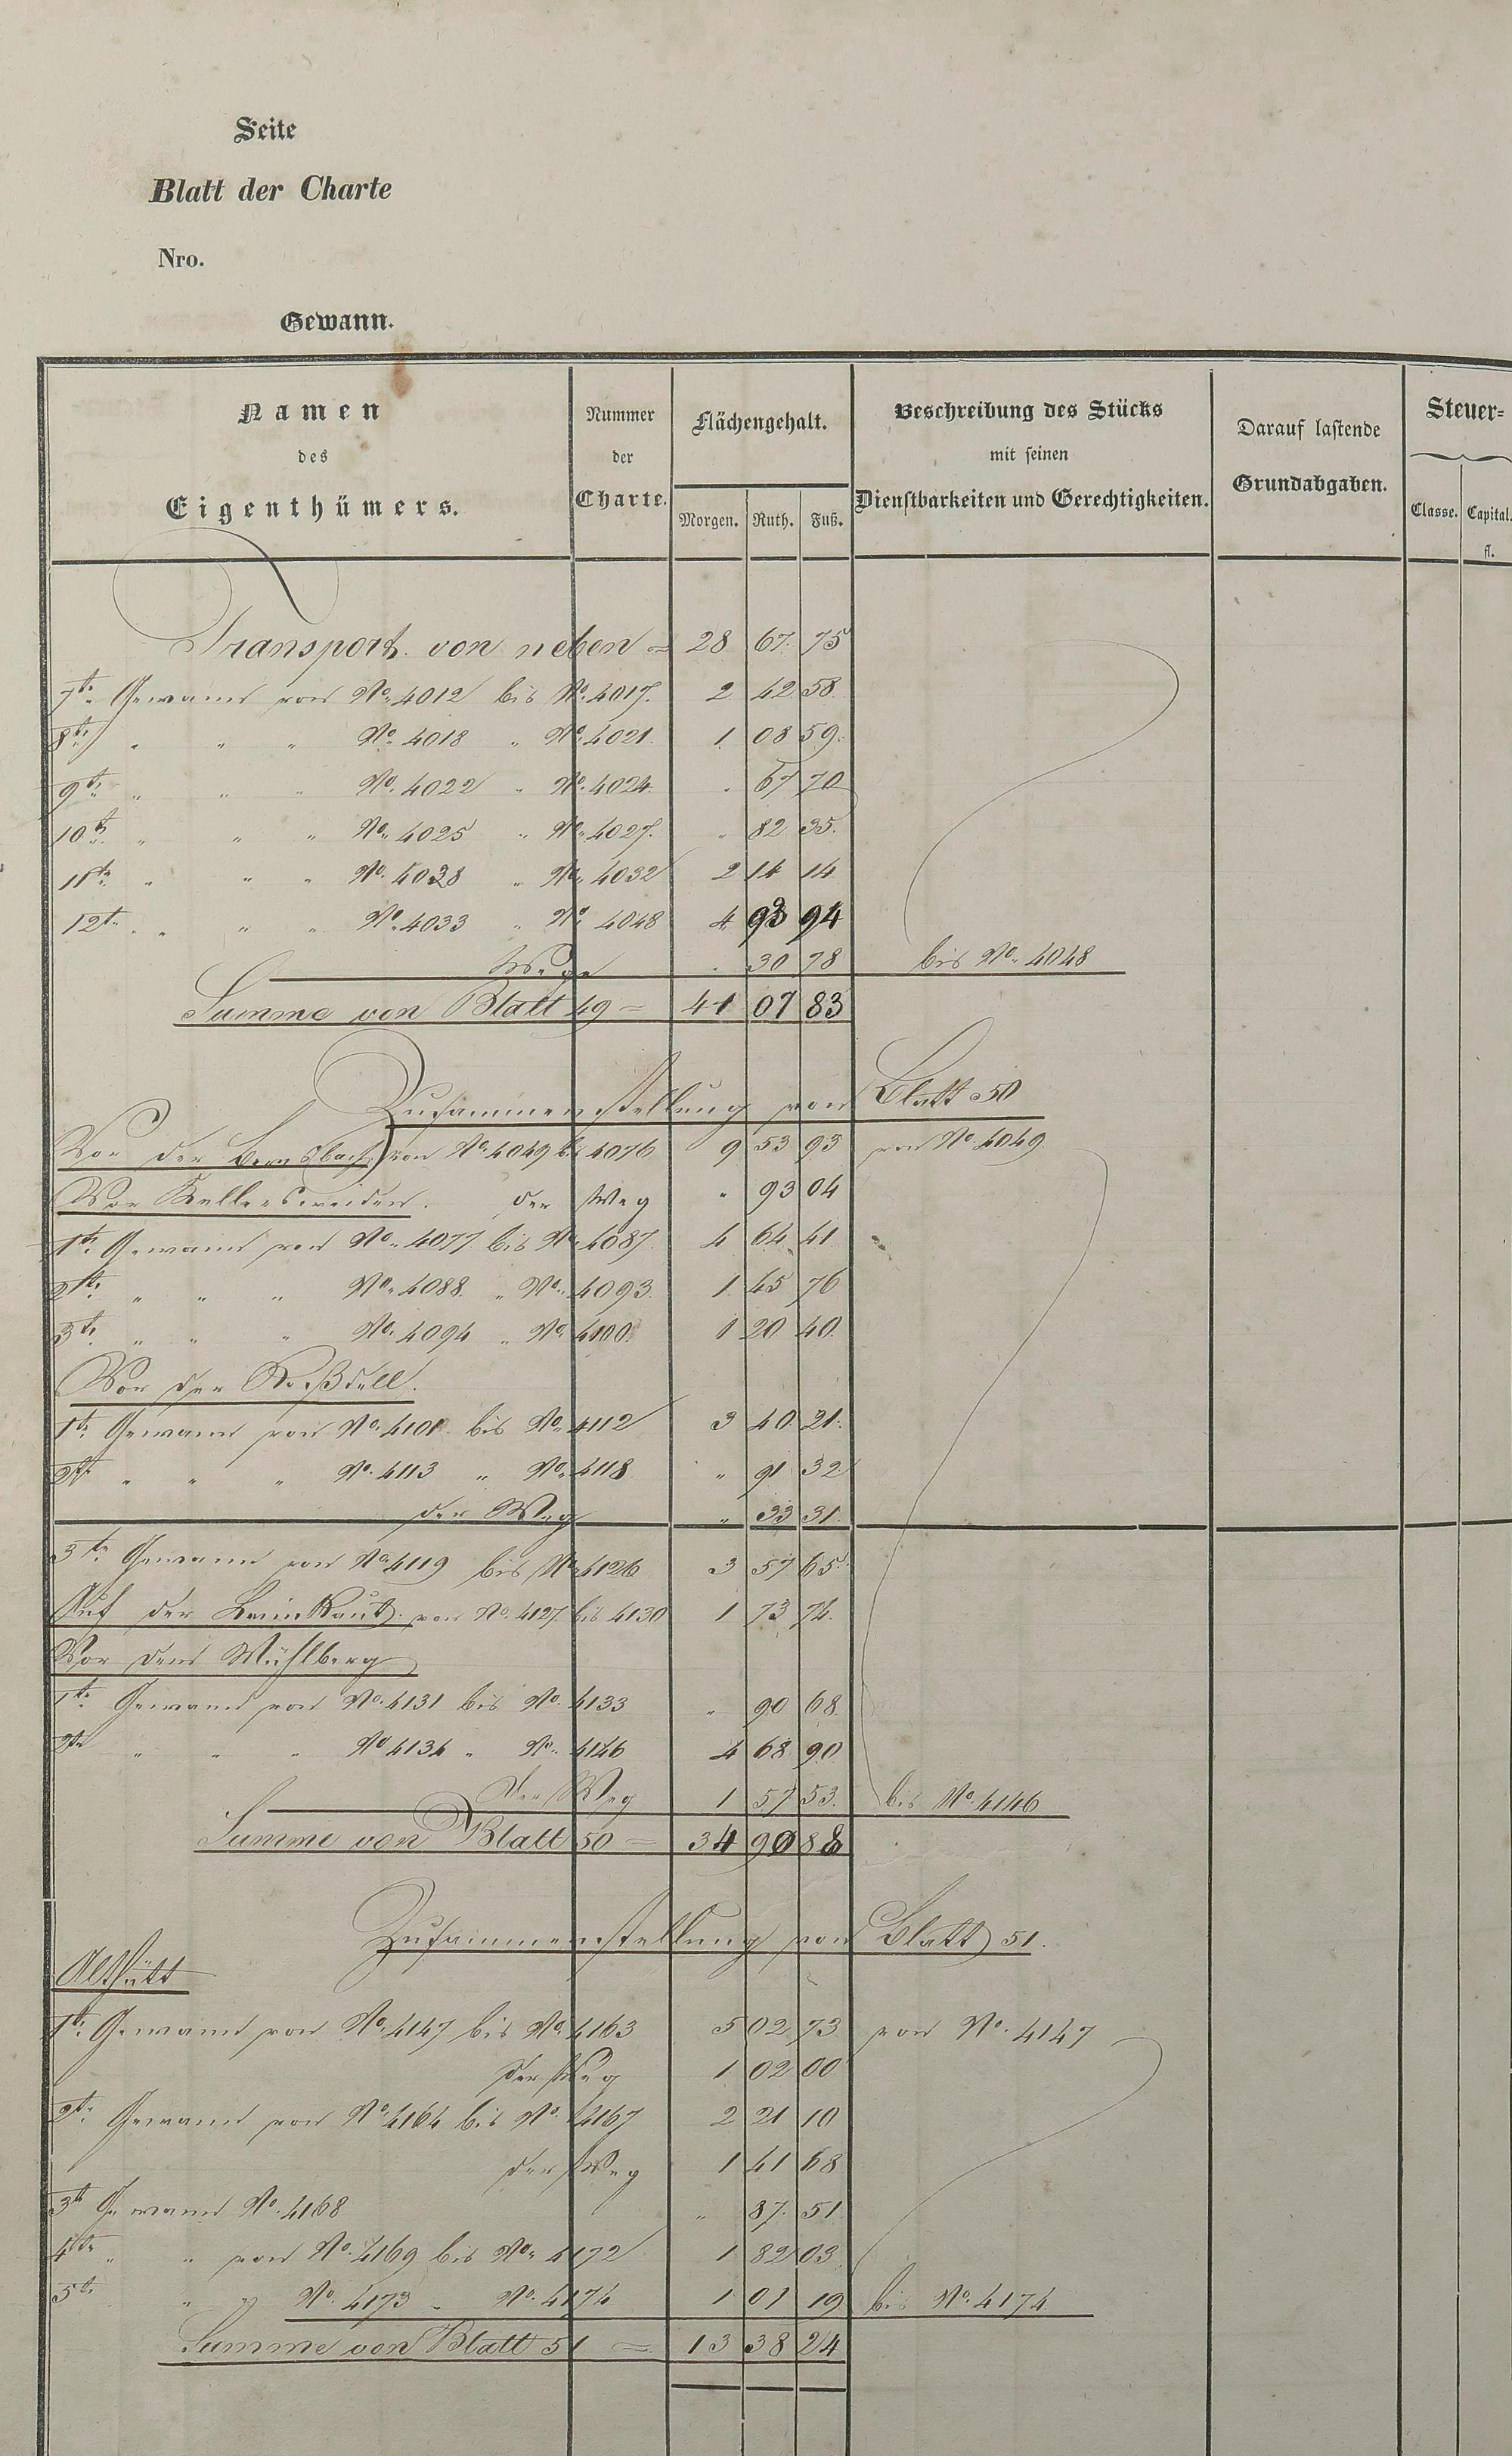 Seite
Blatt der Charte
Nro.
Gewann.
Namen des Eigenthümers.
Nummer der Charte.
Flächengehalt.
Morgen. Ruth. Fuß.
Beschreibung des Stücks mit seinen Dienstbarkeiten und Gerechtigkeiten.
Darauf lastende Grundabgaben.
Steuer=
Classe. Capital.
fl.
Transport von neben = 28 67 75
7te Gewann von No. 4012 bis No. 4017. 2 42 58
8te " " " No. 4018 " No. 4021. 1 08 59.
9te " " " No. 4022 " No. 4024. " 67 70
10te " " " No. 4025 " No. 4027. " 82 35.
11te " " " No. 4028 " No. 4032 2 14 14
12te " " " No. 4033 " No. 4048 4 93 94
Wege " 30 78 bis No. 4048
Summe von Blatt 49 = 41 07 83
Zusammenstellung von Blatt 50
Vor der von No. 4049 bis 4076 9 53 93 von No. 4049.
Vor Kellersweiden. der Weg " 93 04
1te Gewann von No. 4077 bis No. 4087. 4 64 41
2te " " " No. 4088. " No. 4093. 1 45 76
3te " " " No. 4094 " No. 4100. 1 20 40.
Vor der Roßdell.
1te Gewann von No. 4101 bis No. 4112 3 40 21.
2te " " " No. 4113 " No. 4118. " 91 32
der Weg " 33 31.
3te Gewann von No. 4119 bis No. 4126 3 57 65.
Auf der Leimkaut. von No. 4127. bis 4130 1 73 74.
Vor dem Mühlberg
1te Gewann von No. 4131 bis No. 4133 " 90 68.
2te " " " No. 4134 " No. 4146 4 68 90
Der Weg 1 57 53. bis No. 4146
Summe von Blatt 50 = 34 90 88
Zusammenstellung von Blatt 51.
1te Gewann von No. 4147 bis No. 4163 5 02 73 von No. 4147
der Weg 1 02 00
2te Gewann von No. 4164 bis No. 4167 2 21 10
der Weg 1 41 68
3te Gewann No. 4168 " 87 51
4te " " von No. 4169 bis No. 4172 1 82 03
5te " " No. 4173 " No. 4174 1 01 19 bis No. 4174.
Summe von Blatt 51 = 13 38 24